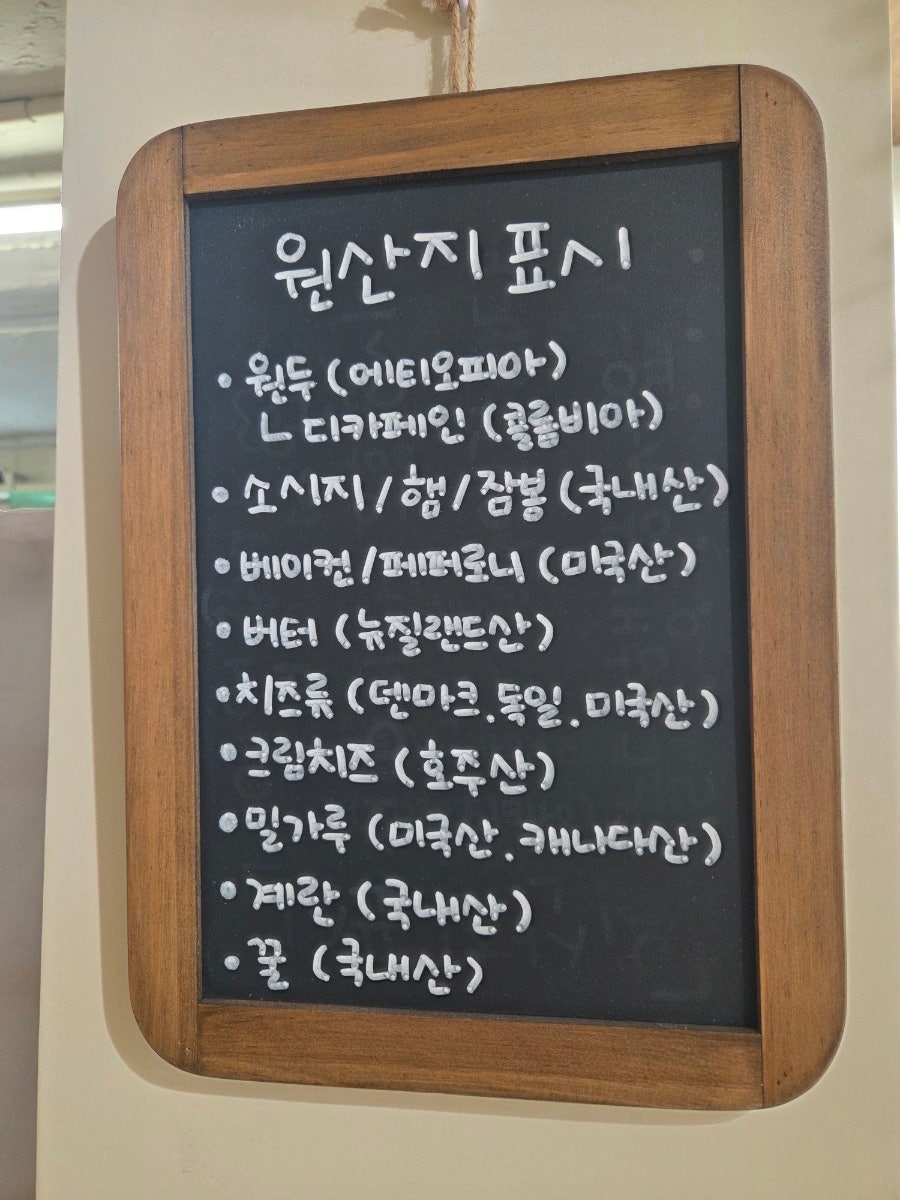 원산지 표시
• 원두 (에티오피아)
ㄴ디카페인 (콜롬비아)
• 소시지/햄/잠봉 (국내산)
• 베이컨/페퍼로니 (미국산)
• 버터 (뉴질랜드산)
• 치즈류 (덴마크.독일.미국산)
• 크림치즈 (호주산)
• 밀가루 (미국산.캐나다산)
• 계란 (국내산)
• 꿀 (국내산)